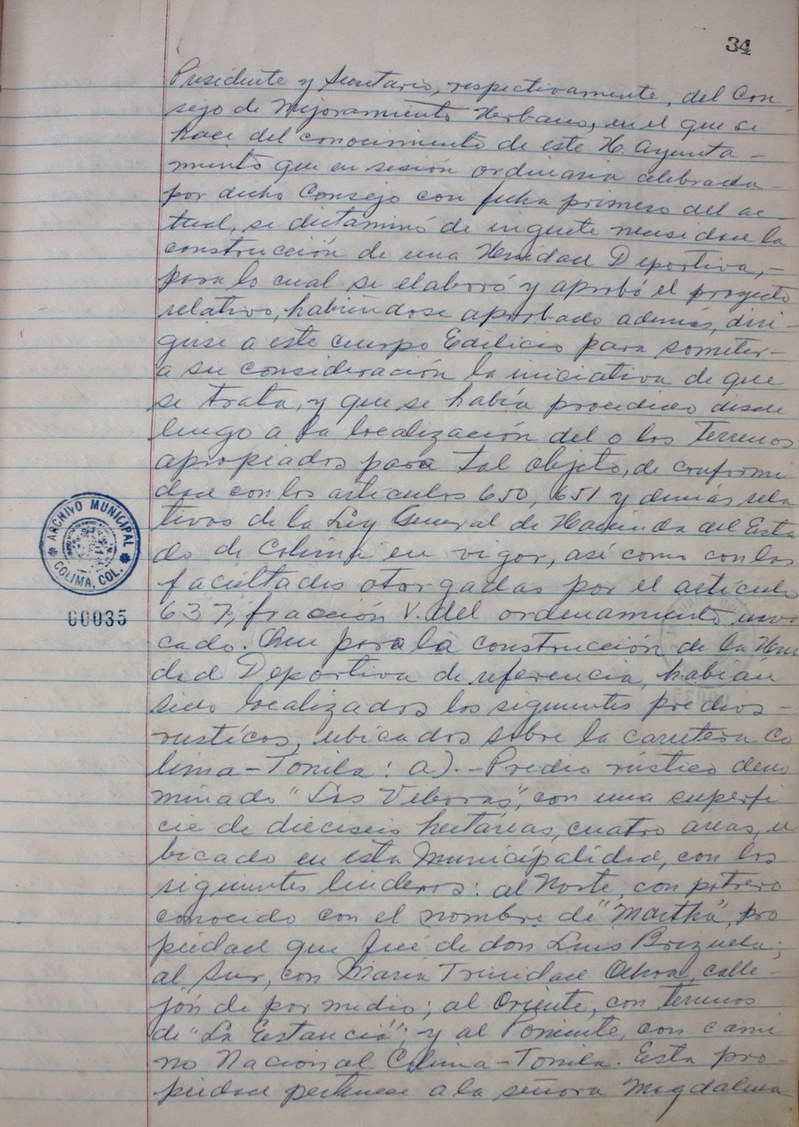 34
Presidente y Secretario, respectivamente, del Con-
sejo de Mejoramiento Urbano, en el que se
hace del conocimiento de este H. Ayunta-
miento que en sesión ordinaria celebrada
por dicho Consejo con fecha primero del ac-
tual, se dictaminó de ingente necesidad la
construcción de una Unidad Deportiva,-
para lo cual se elaboró y aprobó el proyecto
relativo, habiéndose aprobado además, diri-
girse a este cuerpo Edilicio para someter-
a su consideración la iniciativa de que
se trata, y que se había procedido desde
luego a la localización del o los terrenos
apropiados para tal objeto, de conformi
dad con los artículos 650, 651 y demás rela
tivos de la Ley General de Hacienda del Esta
do de Colima en vigor, así como con las
facultades otorgadas por el artículo
637, fracción V. del ordenamiento invo
cado. Que para la construcción de la Uni
dad Deportiva de referencia, habían
sido localizados los siguientes predios-
rústicos, ubicados sobre la carretera Co
lima-Tonila: a).-Predio rústico deno
minado "Las Víboras", con una superfi
cie de dieciseis hectáreas, cuatro areas, u
bicado en esta Municipalidad, con los
siguientes linderos: al Norte, con potrero
conocido con el nombre de "Martha", pro
piedad que fué de don Luis Brizuela;
al Sur, con María Trinidad Ochoa, calle-
jón de por medio; al Oriente, con terrenos
de "La Estancia"; y al Poniente, con cami
no Nacional Colima-Tonila. Esta pro-
piedad pertenece a la señora Magdalena
ARCHIVO MUNICIPAL
COLIMA, COL.
00035